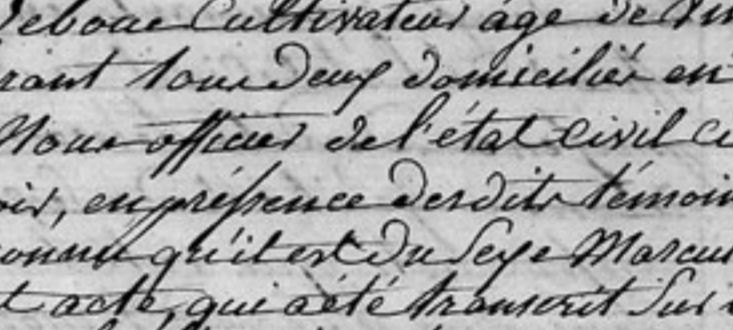 Leboue Cultivateur âgé de
tous deux domiciliés en
Nous officier de l'état Civil
en préssence desdits témoin
qu'il est du Sexe Mascu
acte, qui a été transcrit Sur